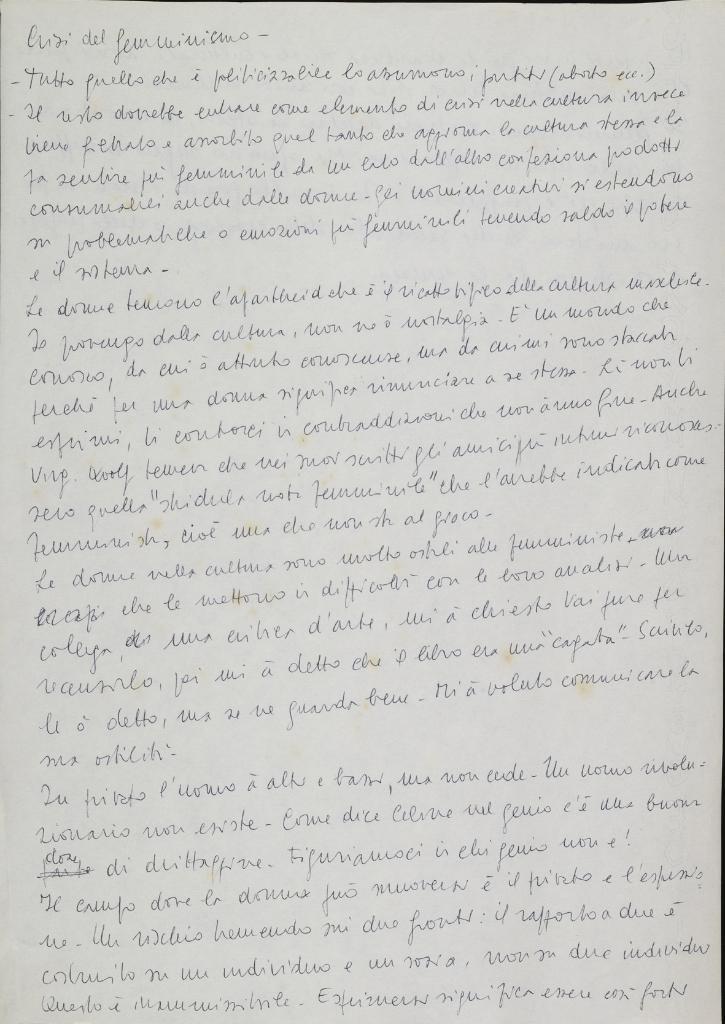 Crisi del femminismo -
- Tutto quello che è politicizzabile lo assumono i partiti (aborto ecc.)
- Il resto dovrebbe entrare come elemento di crisi nella cultura invece
viene filtrato e assorbito quel tanto che aggiorna la cultura stessa e la
fa sentire più femminile da un lato dall'altro confeziona prodotti
consumistici anche dalle donne - gli uomini creativi si estendono
su problematiche o emozioni più femminili tenendo saldo il potere
e il sistema -
Le donne temono l'apartheid che è il ricatto tipico della cultura maschile.
Io provengo dalla cultura, non ne ò nostalgia. E' un mondo che
conosco, da cui ò attinto conoscenze, ma da cui mi sono staccata
perché per una donna significa rinunciare a se stessa. Lì non ti
esprimi, ti contorci in contraddizioni che non ànno fine - Anche
Virg. Woolf temeva che nei suoi scritti gli amici più intimi riconosces-
sero quella "stridula nota femminile" che l'avrebbe indicata come
femminista, cioè una che non sta al gioco -
Le donne nella cultura sono molto ostili alle femministe
che le mettono in difficoltà con le loro analisi - Una
collega, una critica d'arte, mi à chiesto Vai pure per
recensirlo, poi mi à detto che il libro era una "cagata" - Scrivilo,
le ò detto, ma se ne guarda bene - Mi à voluto comunicare la
sua ostilità -
In privato l'uomo à alti e bassi, ma non cede - Un uomo rivolu-
zionario non esiste - Come dice Celine nel genio c'è una buona
dose di drittaggine - Figuriamoci in chi genio non è!
Il campo dove la donna può muoversi è il privato e l'espressio-
ne - Un rischio tremendo sui due fronti: il rapporto a due è
costruito su un individuo e un sosia, non su due individui
Questo è inammissibile - Esprimersi significa essere così forti